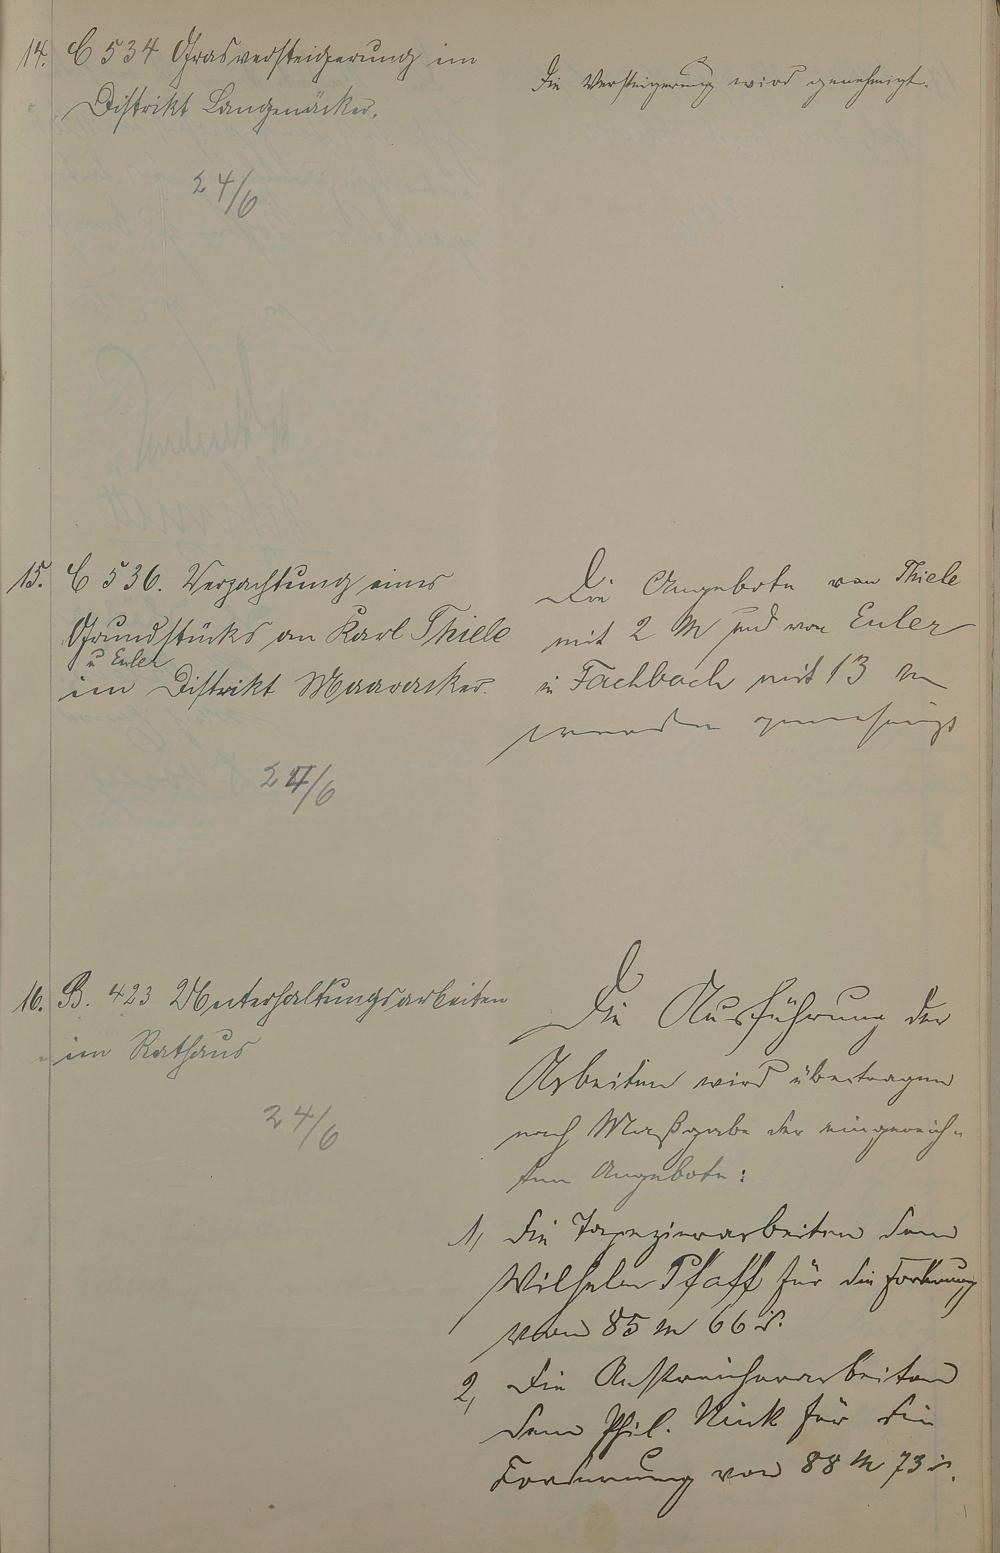 14. C 534 Grasversteigerung im
Distrikt Langenäcker.
24/6
Die Versteigerung wird genehmigt.
15. C 536. Verpachtung eines
Grundstücks an Karl Thiele
u Euler
im Distrikt
24/6
Die Angebote von Thiele
mit 2 M und von Euler
in Fachbach mit 13 M
werden genehmigt
16. B. 423 Unterhaltungsarbeiten
im Rathaus
24/6
Die Ausführung der
Arbeiten wird übertragen
nach Maßgabe der eingereich-
ten Angebote:
1, die Tapezierarbeiten dem
Wilhelm Pfaff für die Forderung
von 85 M 66 d.
2, die Anstreicherarbeiten
dem Phil. Nink für die
Forderung von 88 M 73 d.